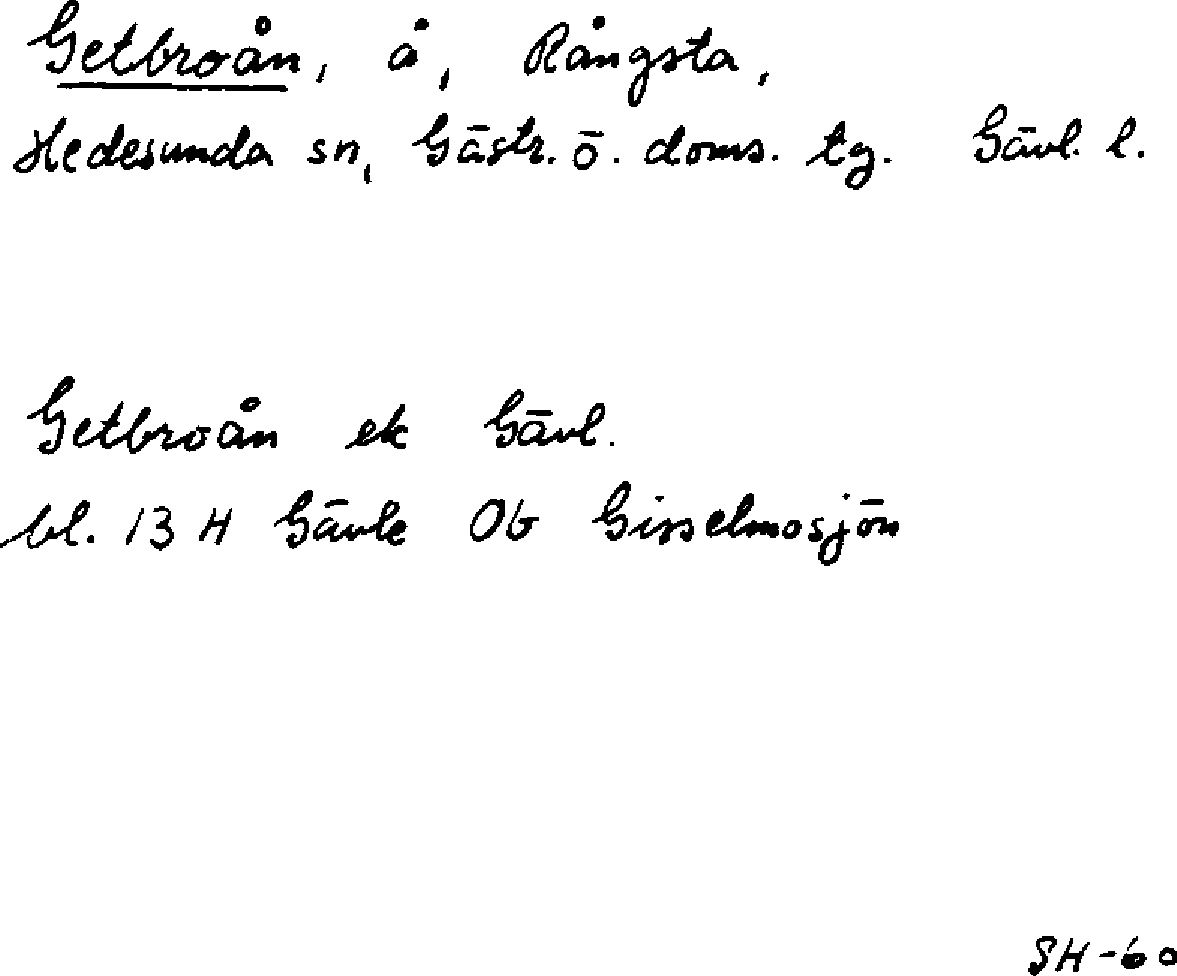 Getbroån, å, Rångsta,
Hedesunda sn, Gästr. ö. doms. tg. Gävl. l.
Getbroån ek Gävl.
bl. 13 H Gävle 0b Gisselmosjön
SH-60